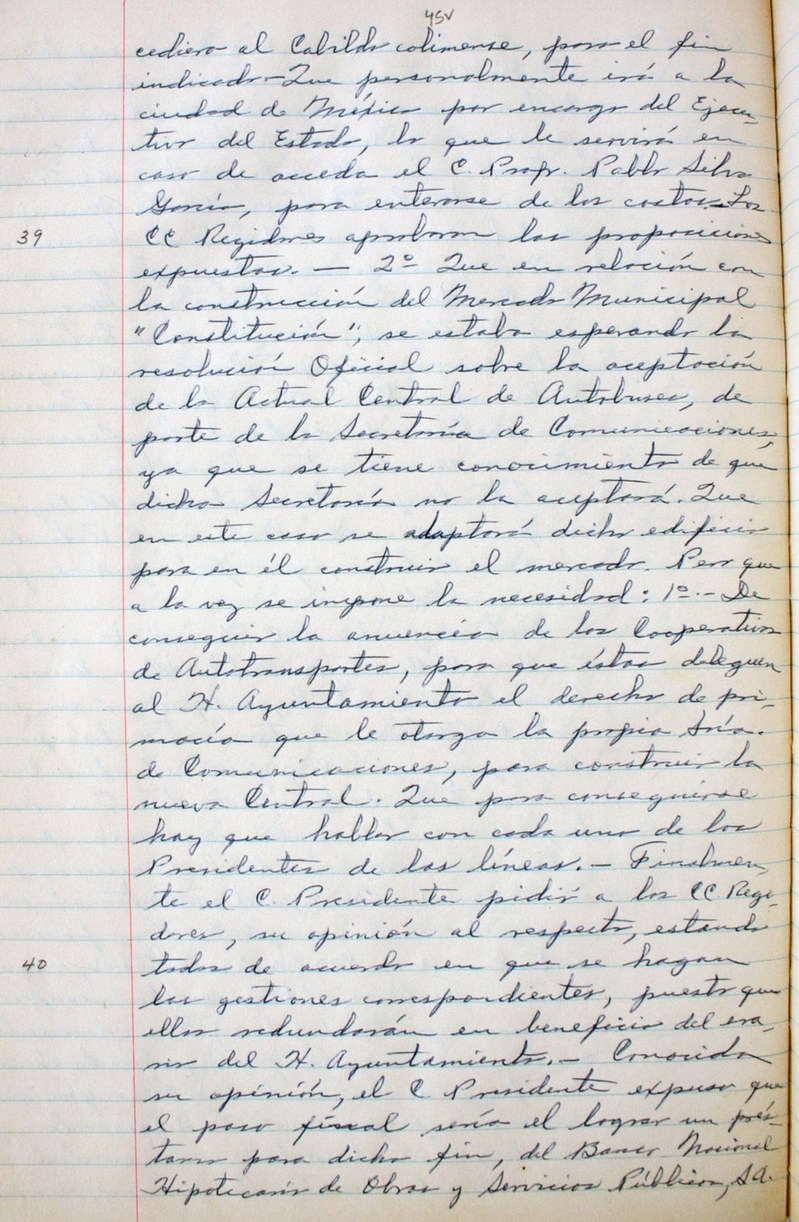 45v
cediera al Cabildo colimense, para el fin
indicado.- Que personalmente irá a la
ciudad de México por encargo del Ejecu-
tivo del Estado, lo que le servirá en
caso de acceda el C. Profr. Pablo Silva
García, para enterarse de los costos.- Los
39 CC Regidores aprobaron las proposiciones
expuestas. — 2º Que en relación con
la construcción del Mercado Municipal
"Constitución", se estaba esperando la
resolución Oficial sobre la aceptación
de la Actual Central de Autobuses, de
parte de la Secretaría de Comunicaciones,
ya que se tiene conocimiento de que
dicha Secretaría no la aceptará. Que
en este caso se adaptará dicho edificio
para en él construir el mercado. Pero que
a la vez se impone la necesidad: 1º.- De
conseguir la anuencia de las Cooperativas
de Autotransportes, para que éstas deleguen
al H. Ayuntamiento el derecho de pri-
macía que le otorga la propia Sría.
de Comunicaciones, para construir la
nueva Central. Que para conseguirse
hay que hablar con cada uno de los
Presidentes de las líneas.- Finalmen-
te el C. Presidente pidió a los CC Regi-
dores, su opinión al respecto, estando
40 todos de acuerdo en que se hagan
las gestiones correspondientes, puesto que
ellas redundarán en beneficio del era-
rio del H. Ayuntamiento.- Conocida
su opinión, el C. Presidente expuso que
el paso fiscal sería el lograr un prés-
tamo para dicho fin, del Banco Nacional
Hipotecario de Obras y Servicios Públicos, S.A.